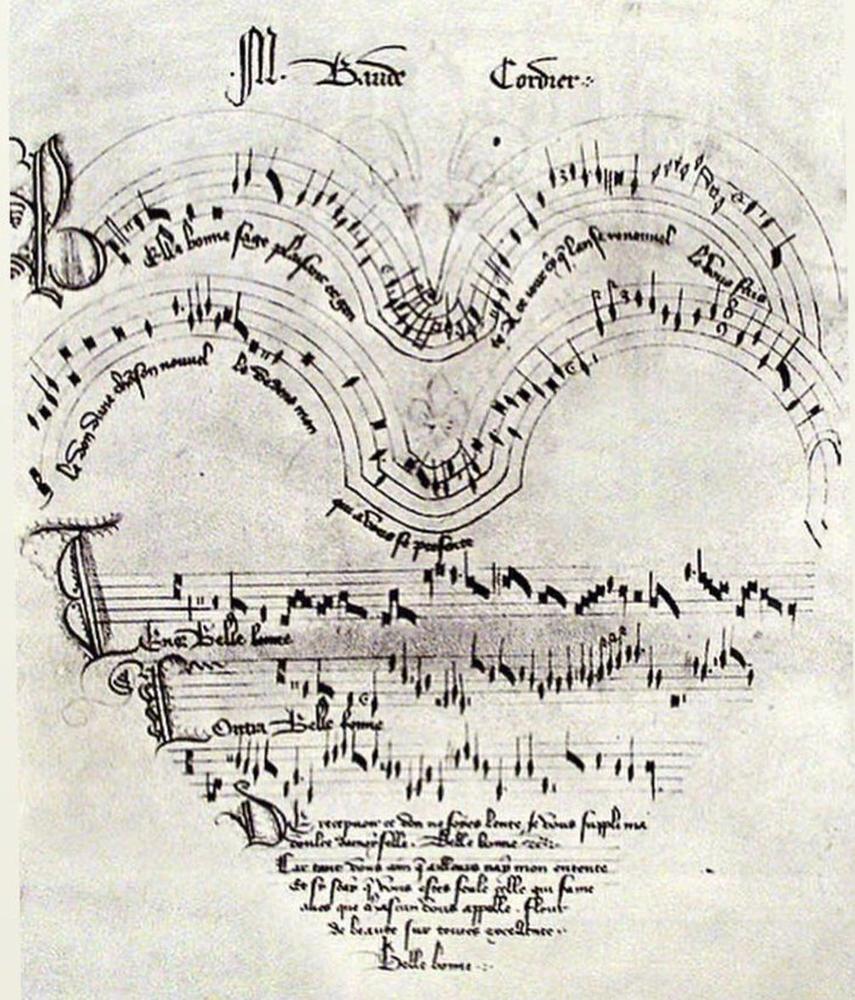 M. Baude Cordier
Belle bonne sage plaisant et gen
le jour que l'an se renouvel
Je vous fais
le don d'une chanson nouvel
le dedens mon
qui a vous se presente
Tenor Belle bonne
Contra Belle bonne
De recepvoir ce don ne soyes lente, Je vous suppli ma
doulce damoyselle. Belle bonne
Car tant vous aim q'aillours nay mon entente
Et sy scay q' vous estes seule celle qui fame
aves que chascun vous appelle. flour
de beaute sur toutes excellente
Belle bonne